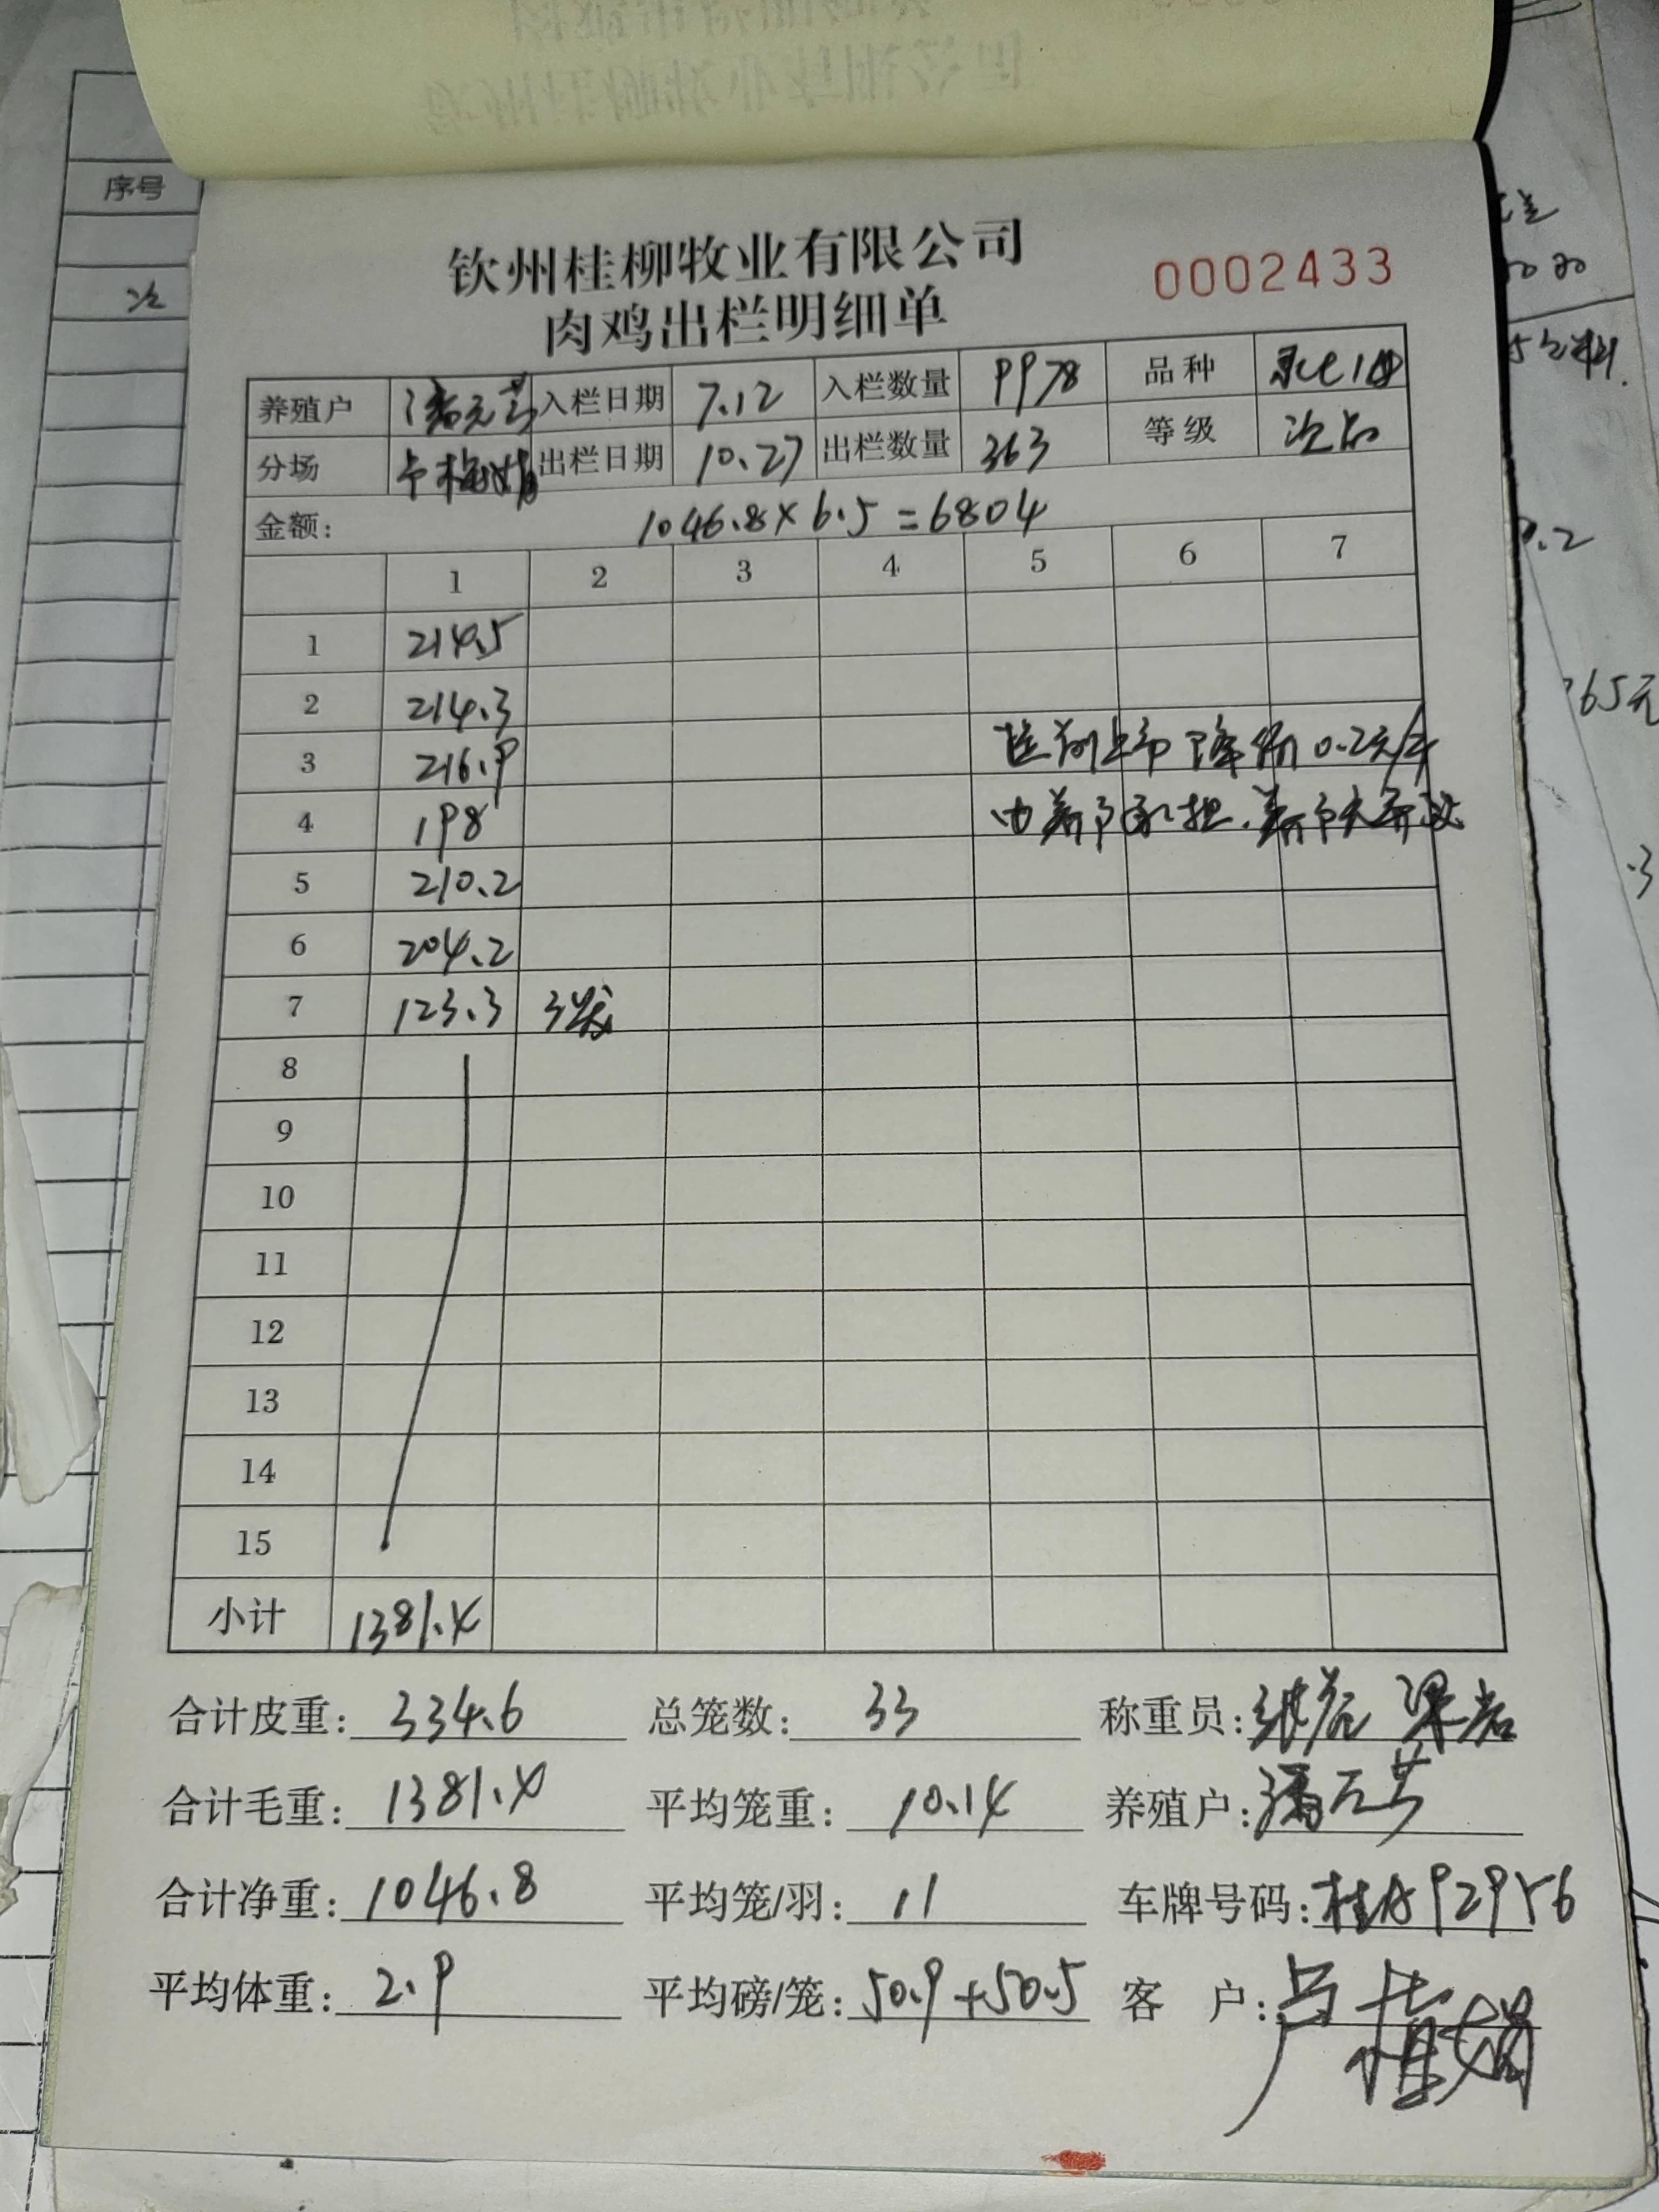 序号
次
钦州桂柳牧业有限公司
肉鸡出栏明细单
0002433
养殖户 潘元芬 入栏日期 7.12 入栏数量 9978 品种
分场 卢梅娟 出栏日期 10.27 出栏数量 363 等级 次品
金额: 1046.8×6.5=6804
1 2 3 4 5 6 7
1 214.5
2 214.3
3 216.9 提前上市降价0.2元/斤
4 198 由养户承担.养户无异议
5 210.2
6 204.2
7 123.3 3笼
8
9
10
11
12
13
14
15
小计 1381.4
合计皮重: 334.6 总笼数: 33 称重员:
合计毛重: 1381.4 平均笼重: 10.14 养殖户: 潘元芬
合计净重: 1046.8 平均笼/羽: 11 车牌号码: 桂A92956
平均体重: 2.9 平均磅/笼: 50.9+50.5 客 户: 卢梅娟
365元